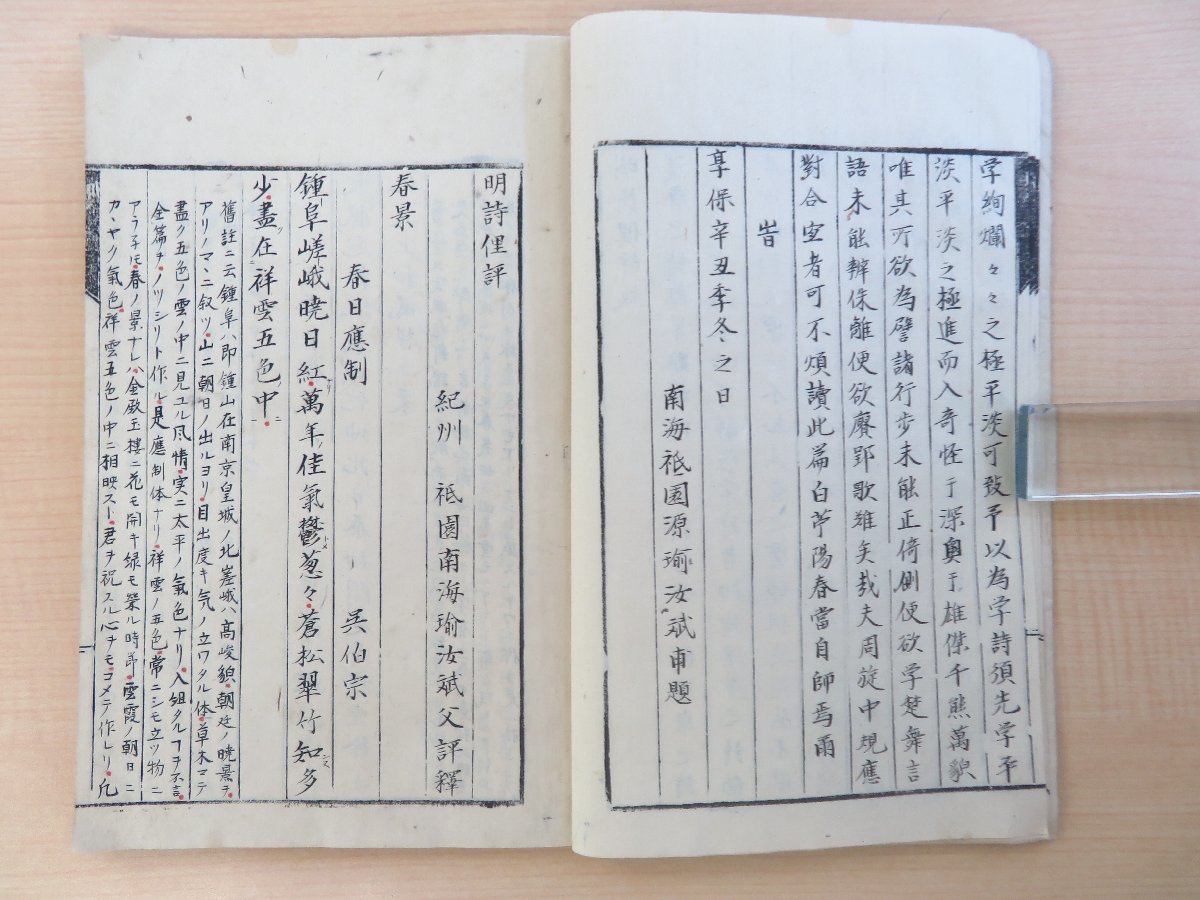 学絢爛々々之極平淡可致予以為学詩須先学平
淡平淡之極進而入奇怪于深奥于雄傑千態萬貌
唯其所欲為譬諸行歩未能正倚側便欲学楚舞言
語未能辨侏離便欲賡郢歌難矣哉夫周旋中規應
對合宜者可不煩讀此篇白苧陽春當自師焉爾
旹
享保辛丑季冬之日
南海祗園源瑜汝斌甫題
明詩俚評
紀州 祗園南海瑜汝斌父評釋
春景
春日應制 呉伯宗
鍾阜嵯峨曉日紅萬年佳氣鬱葱々蒼松翠竹知多
少盡在祥雲五色中
舊註ニ云鍾阜ハ即鍾山在南京皇城ノ北嵯峨ハ高峻貌朝廷ノ曉景ヲ
アリノマヽニ叙ツ山ニ朝日ノ出ルヨリ目出度キ気ノ立ワタル体草木マテ
盡ク五色ノ雲ノ中ニ見ユル風情実ニ太平ノ氣色ナリ入組タルヿヲ不言
全篇ヲノツシリト作ル是應制体ナリ祥雲ノ五色常ニシモ立ツ物ニ
アラ子𪜈春ノ景ナレハ金殿玉樓ニ花モ開キ緑モ榮ル時節雲霞ノ朝日ニ
カヽヤク氣色祥雲五色ノ中ニ相映スト君ヲ祝スル心ヲモコメテ作レリ凡